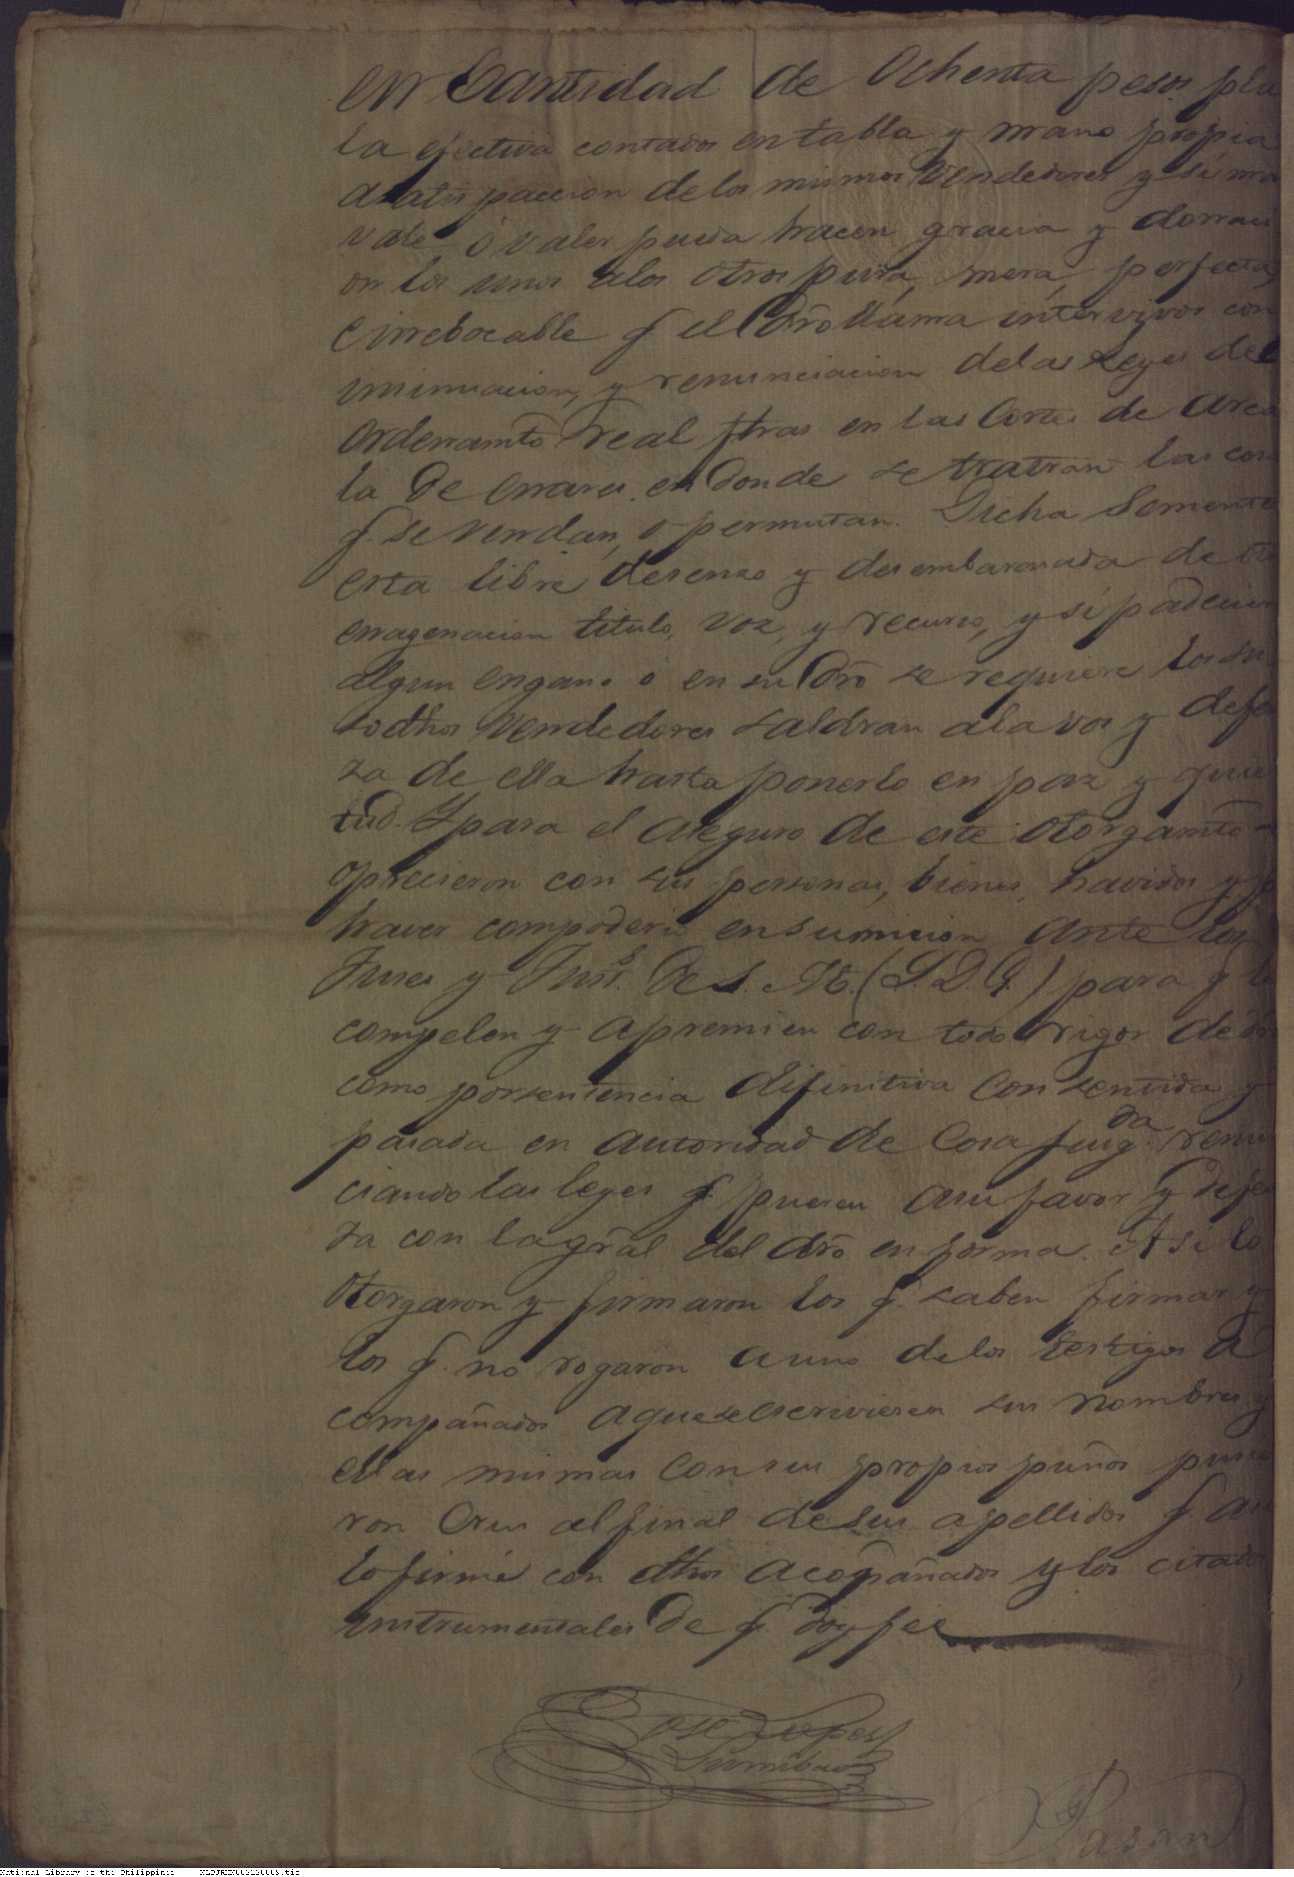 en Cantidad de Ochenta pesos pla
ta efectiva contados en tabla y mano propia
a satisfaccion de los mismos Vendedores y si mas
vale ó valer pueda hacen gracia y donaci
on los unos alos otros pura, mera, perfecta,
é irrebocable q̃ el Dro̅ llama intervivos con
insinuacion, y renunciacion delas Leyes del
Ordenamto real ftras en las Cortes de Arca
la De enares en donde se tratran las cosas
q̃ se vendan, o permutan. Dicha Sementa
esta libre desenso y desembarasada de ot
enagenacion titulo, voz, y recurso, y si padecier
algun engano ó en su Dro̅ se requiere los su
sodhos Vendedores saldran ala vos y defen
za de ella hasta ponerlo en paz y quie
tud. Y para el aseguro de este otorgamto
oprecieron con sus personas, bienes, havidos y p
haver compoderio en sumicion ante los
Jueses y Juss. De S. M. (S.D.G.) para q̃ le
compelan y apremien con todo rigor de dro
como porsentencia difinitiva Consentida y
pasada en autoridad de Cosa Juzgda renun
ciando las leyes q̃ pueren asu favor y defen
za con la gral del dro̅ en forma. Asi lo
Otorgaron y firmaron los q̃ saben firmar y
los q̃ no rogaron a uno de los testigos A
compañados aquese escrivieren sus nombres y
ellas mismas Con sus propios puños pusie
ron Crus al final de sus apellidos q̃ asi
lo firmé con dhos acopañados y los citados
instrumentales De q̃ doy fee
Jose Lopes
Tumibao
Pasan